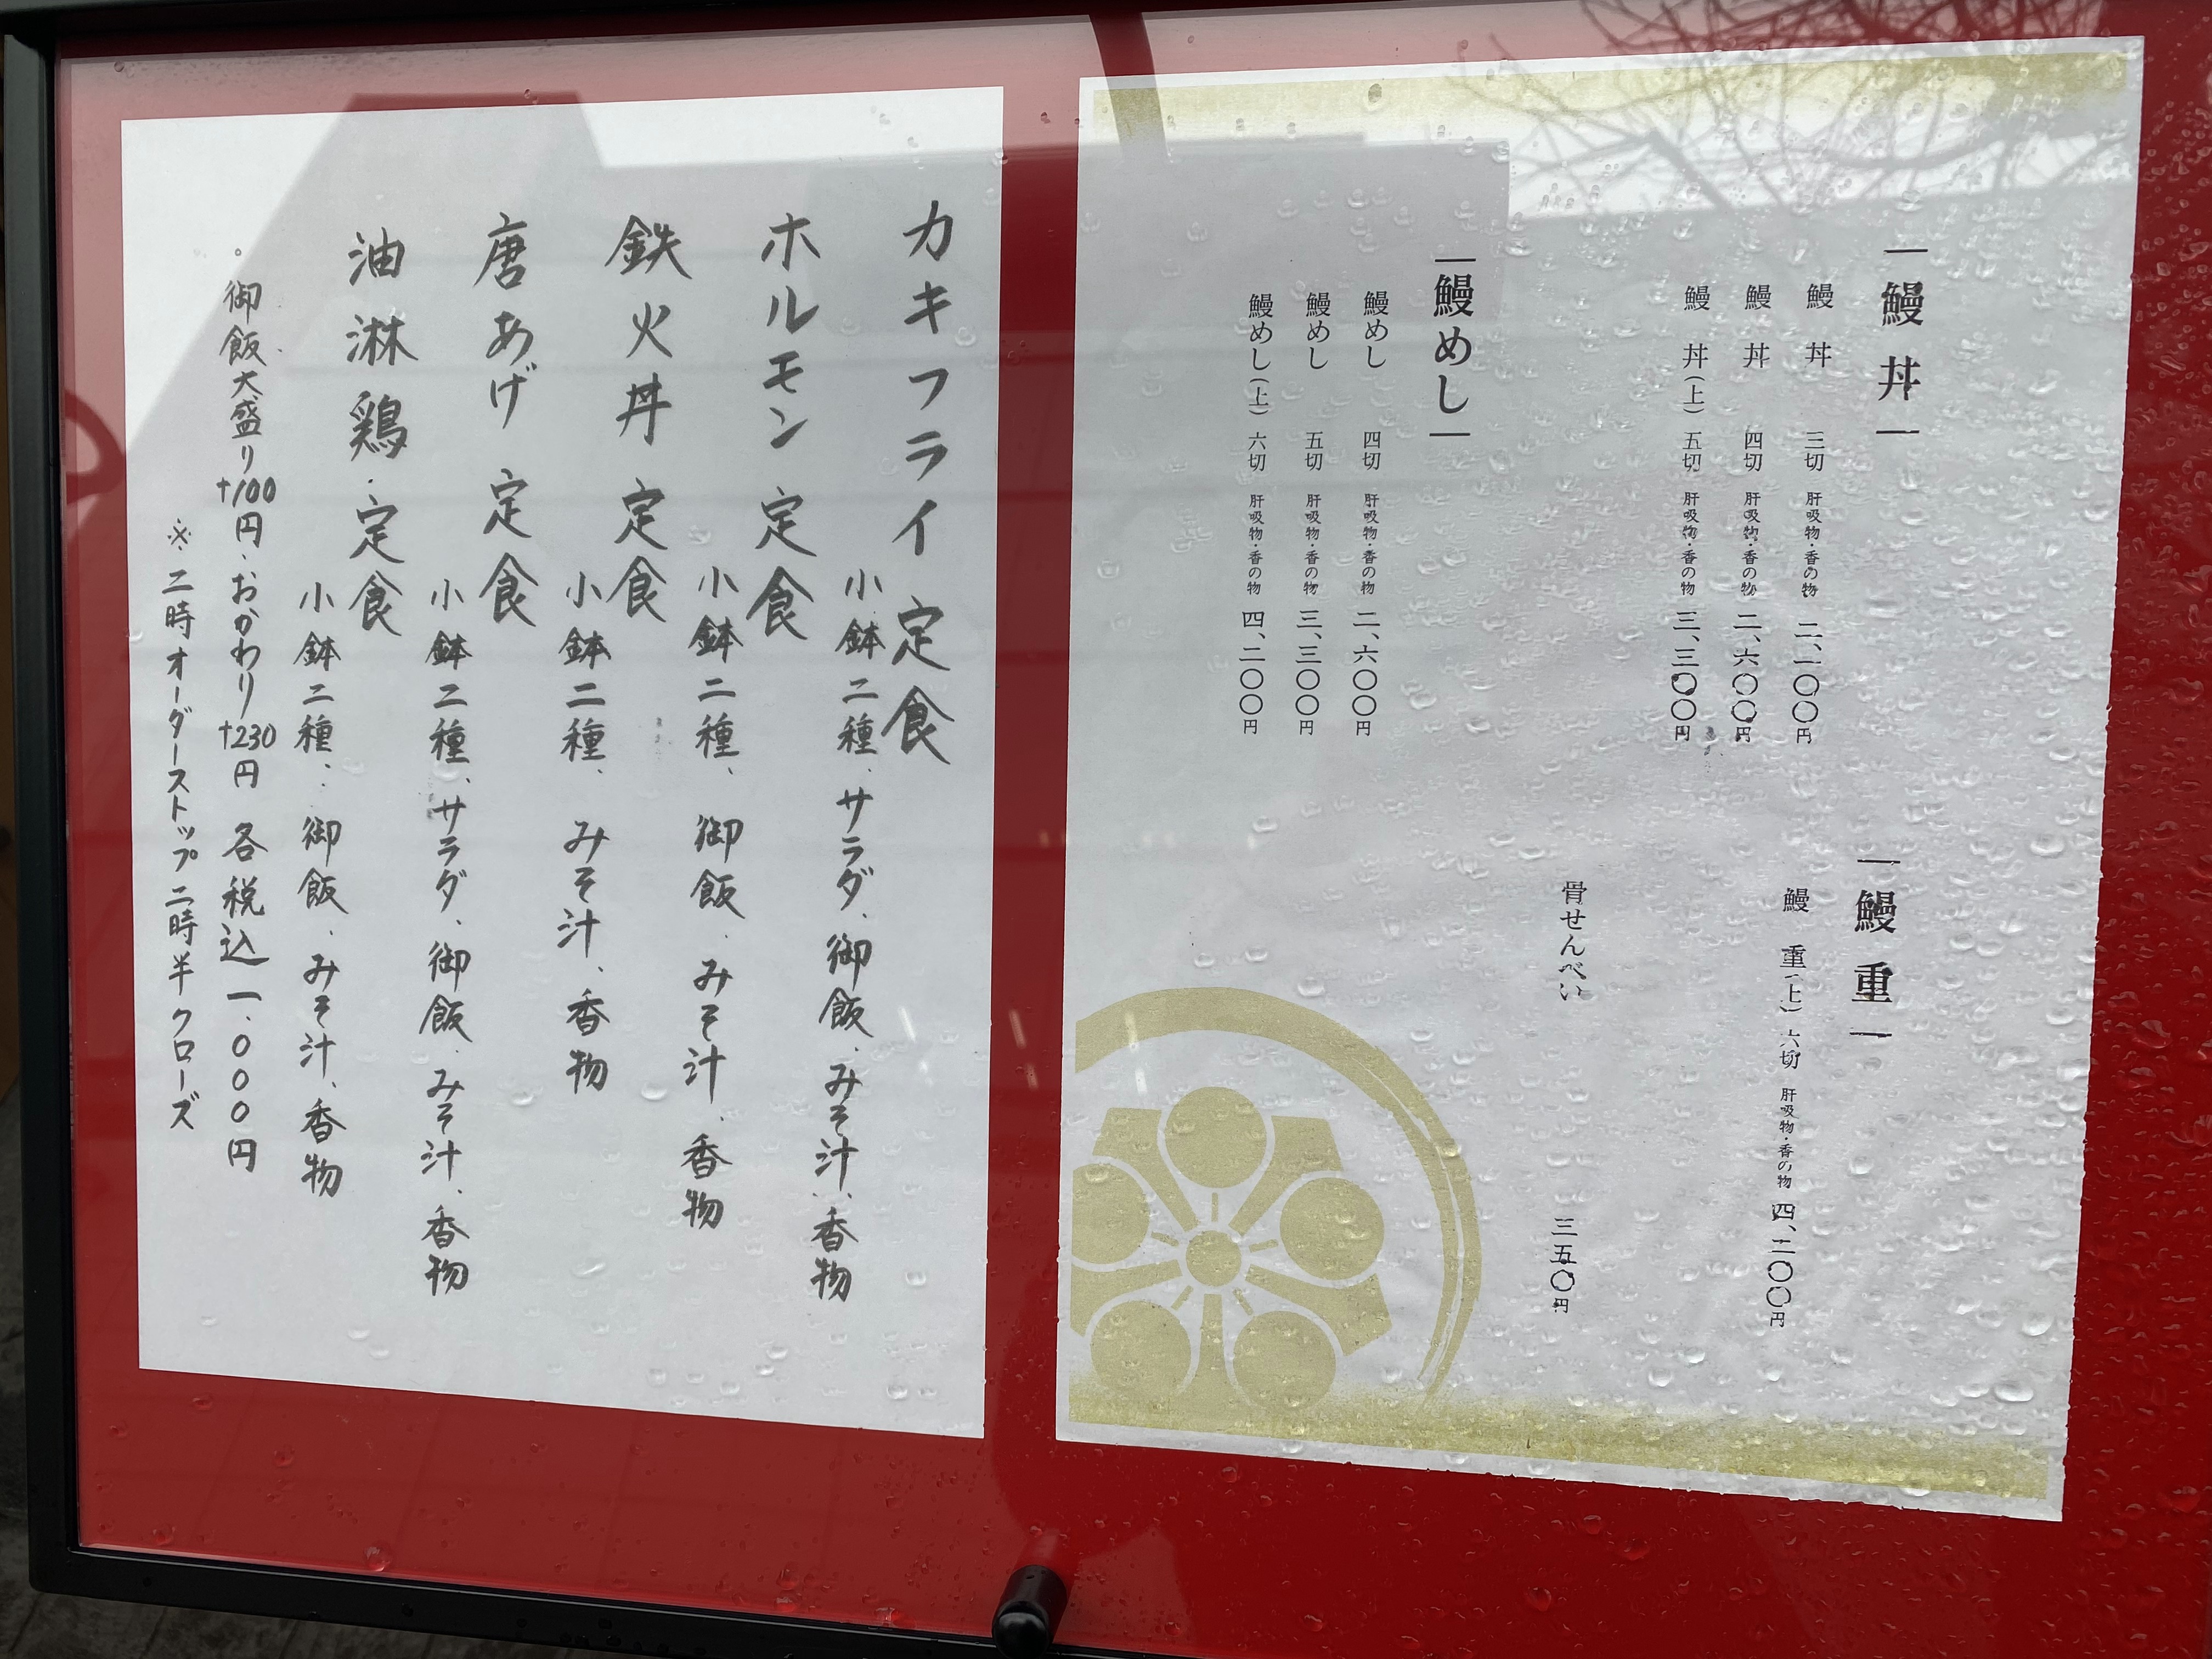 鰻丼
鰻丼 三切 肝吸物・香の物 二、一〇〇円
鰻丼 四切 肝吸物・香の物 二、六〇〇円
鰻丼(上) 五切 肝吸物・香の物 三、三〇〇円
鰻めし
鰻めし 四切 肝吸物・香の物 二、六〇〇円
鰻めし 五切 肝吸物・香の物 三、三〇〇円
鰻めし(上) 六切 肝吸物・香の物 四、二〇〇円
鰻重
鰻重(上) 六切 肝吸物・香の物 四、二〇〇円
骨せんべい 三五〇円
カキフライ定食
小鉢二種、サラダ、御飯、みそ汁、香物
ホルモン定食
小鉢二種、御飯、みそ汁、香物
鉄火丼定食
小鉢二種、みそ汁、香物
唐あげ定食
小鉢二種、サラダ、御飯、みそ汁、香物
油淋鶏定食
小鉢二種、御飯、みそ汁、香物
御飯大盛り+100円、おかわり+230円 各税込一、000円
※二時オーダーストップ二時半クローズ